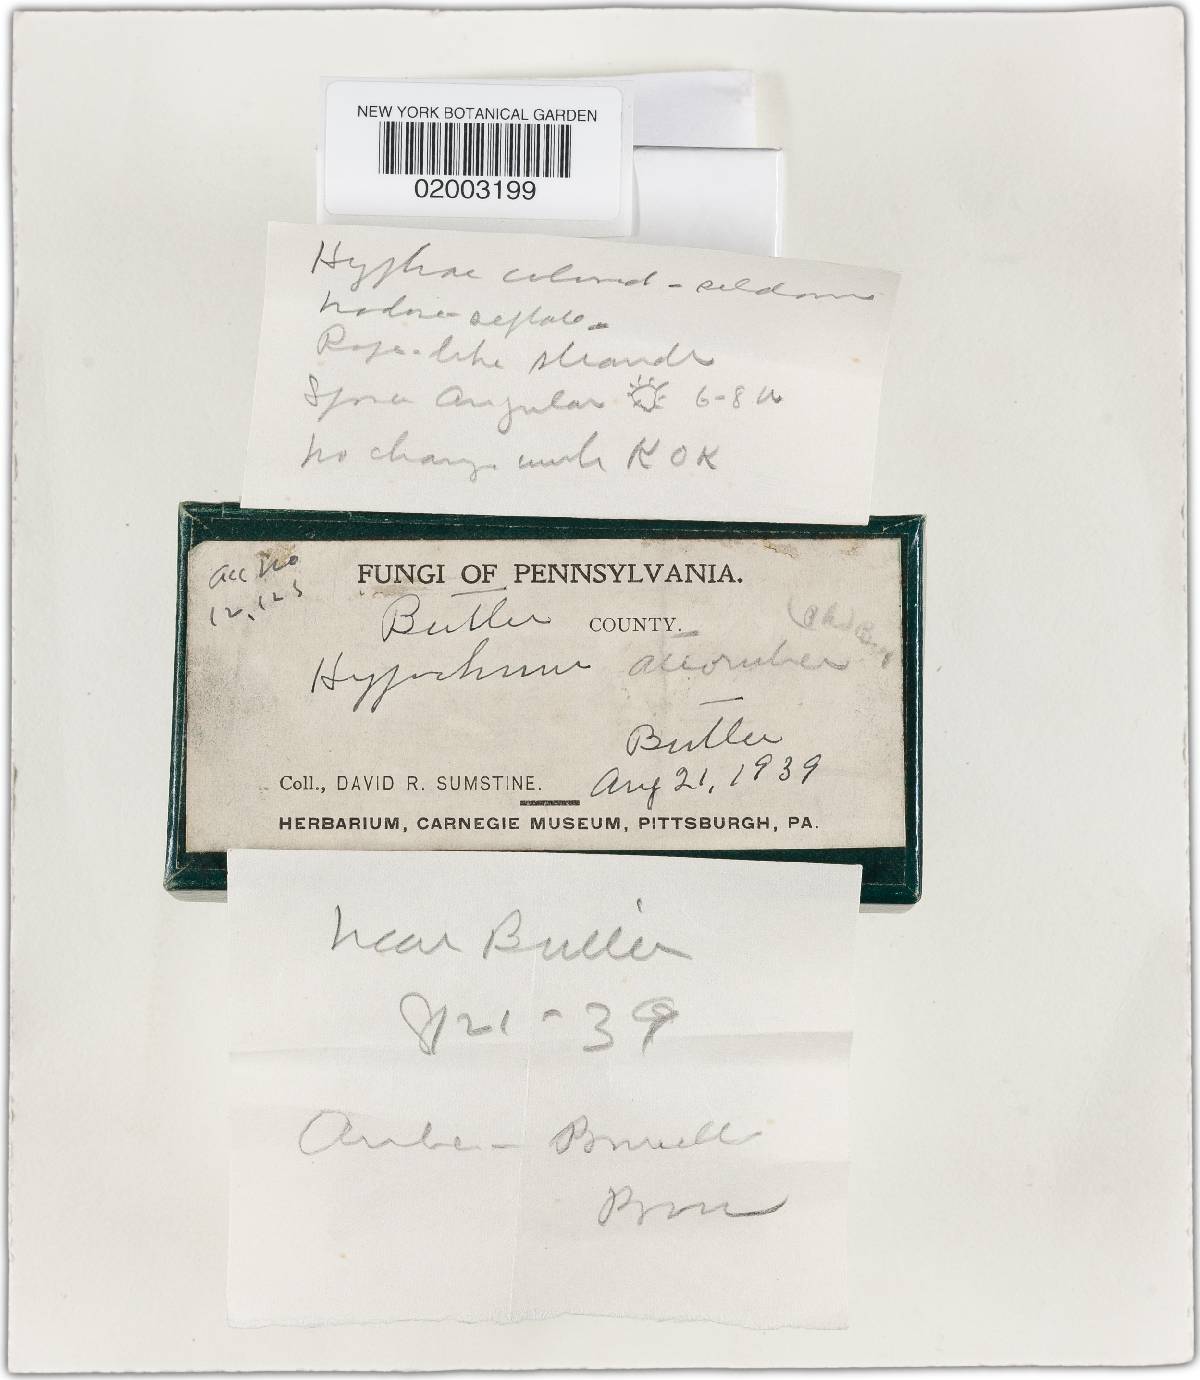 NEW YORK BOTANICAL GARDEN
02003199
Hyphae colored - seldom
nodose-septate -
Rope-like strands
Spores Angular 6-8 u
No change with KOK
Acc No
12,123
FUNGI OF PENNSYLVANIA.
Butler COUNTY.
Hypochnus atroruber
Butler
Coll., DAVID R. SUMSTINE. Aug 21, 1939
HERBARIUM, CARNEGIE MUSEUM, PITTSBURGH, PA.
Near Butler
8/21-39